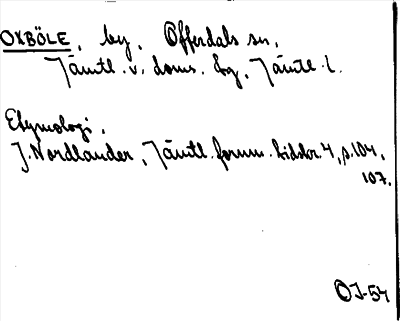 OXBÖLE, by, Offerdals sn,
Jämtl. v. doms. hg, Jämtl. l.
Etymologi.
J. Nordlander, Jämtl. fornm. tidskr. 4, s. 104,
107.
OJ-54